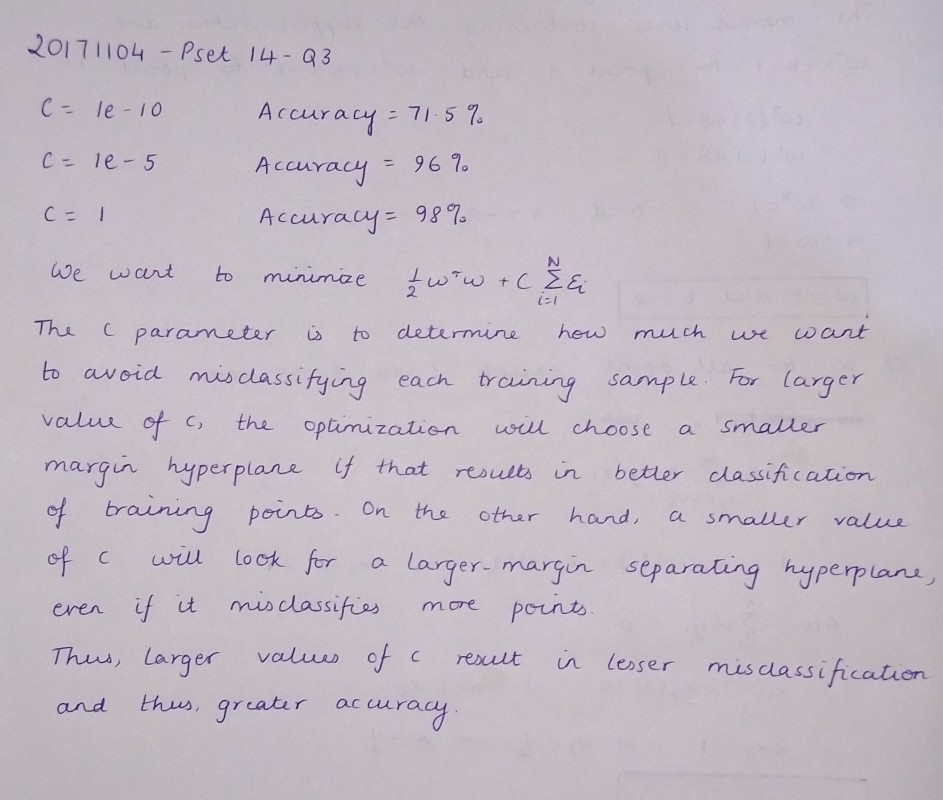 20171104 - Pset 14 - Q3
C = 1e-10 Accuracy = 71.5 %
C = 1e-5 Accuracy = 96 %
C = 1 Accuracy = 98%
We want to minimize 1/2 wᵀw + C Σ_{i=1}^{N} ξi
The C parameter is to determine how much we want
to avoid misclassifying each training sample. For larger
value of C, the optimization will choose a smaller
margin hyperplane if that results in better classification
of training points. On the other hand, a smaller value
of C will look for a larger-margin separating hyperplane,
even if it misclassifies more points.
Thus, larger values of C result in lesser misclassification
and thus, greater accuracy.